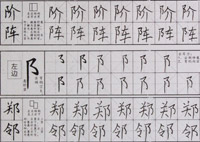 阶 阶 阶 阶 阶 阶 阶 阶
阵 阵 阵 阵 阵 阵 阵 阵
左边 阝 阝 阝 阝 阝 阝 阝
阝 阝 阝 阝 阝 阝
郑 郑 郑 郑 郑 郑 郑 郑
邻 邻 邻 邻 邻 邻 邻 邻